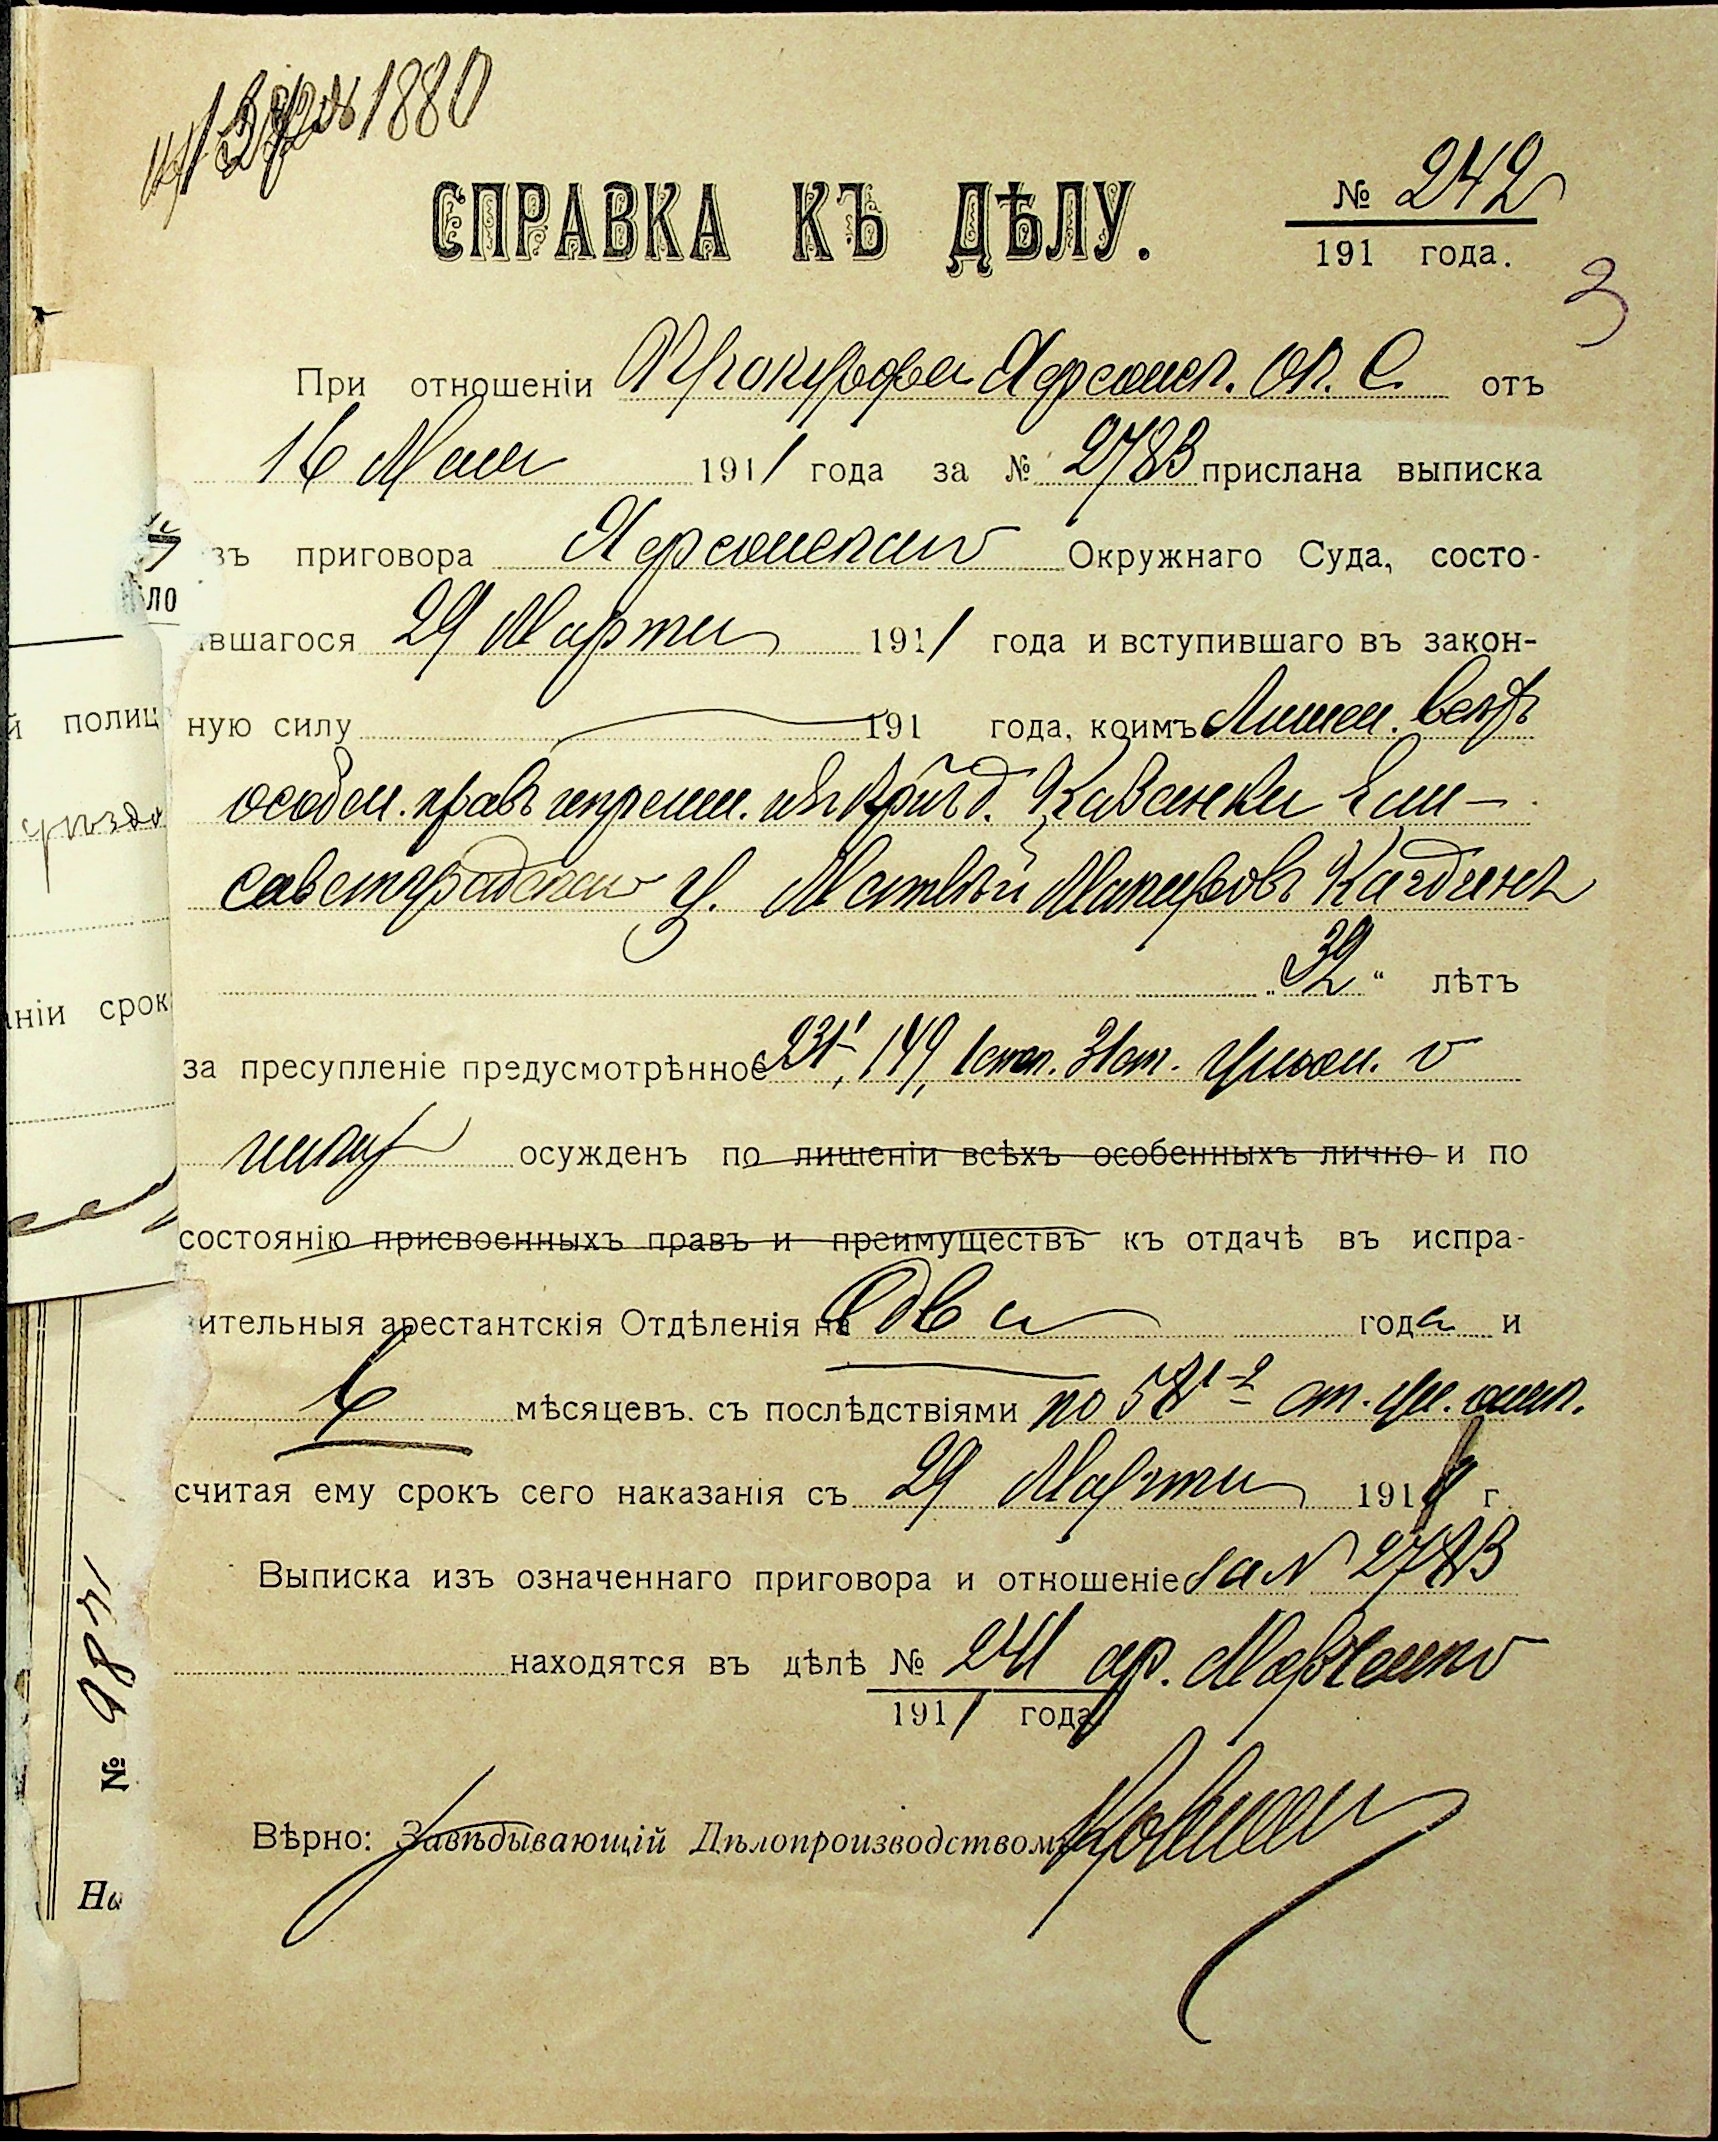 1880
СПРАВКА КЪ ДѢЛУ.
№ 242
191 года.
3
При отношеніи Прокурора Херсонск. Ок. С. отъ
16 Мая 1911 года за № 2783 прислана выписка
зъ приговора Херсонскаго Окружнаго Суда, состо-
вшагося 29 Марта 1911 года и вступившаго въ закон-
ную силу 191 года, коимъ Лишен. всѣхъ
особен. правъ и преим. кр. д. Казанки Ели-
саветградскаго у. Матвѣй Макаровъ
"32" лѣтъ
за пресупленіе предусмотрѣнное 31 ст. Улож. о
наказ осужденъ по лишеніи всѣхъ особенныхъ лично и по
состоянію присвоенныхъ правъ и преимуществъ къ отдачѣ въ испра-
ительныя арестантскія Отдѣленія на два года и
6 мѣсяцевъ. съ послѣдствіями по 58 1-2 ст. ул. о нак.
считая ему срокъ сего наказанія съ 29 Марта 1911 г.
Выписка изъ означеннаго приговора и отношеніе за № 2783
находятся въ дѣлѣ № 241 ар.
1911 года
Вѣрно: Завѣдывающій Дѣлопроизводствомъ
ло
й полиц
уѣзда
ніи срок
№ 9871
На